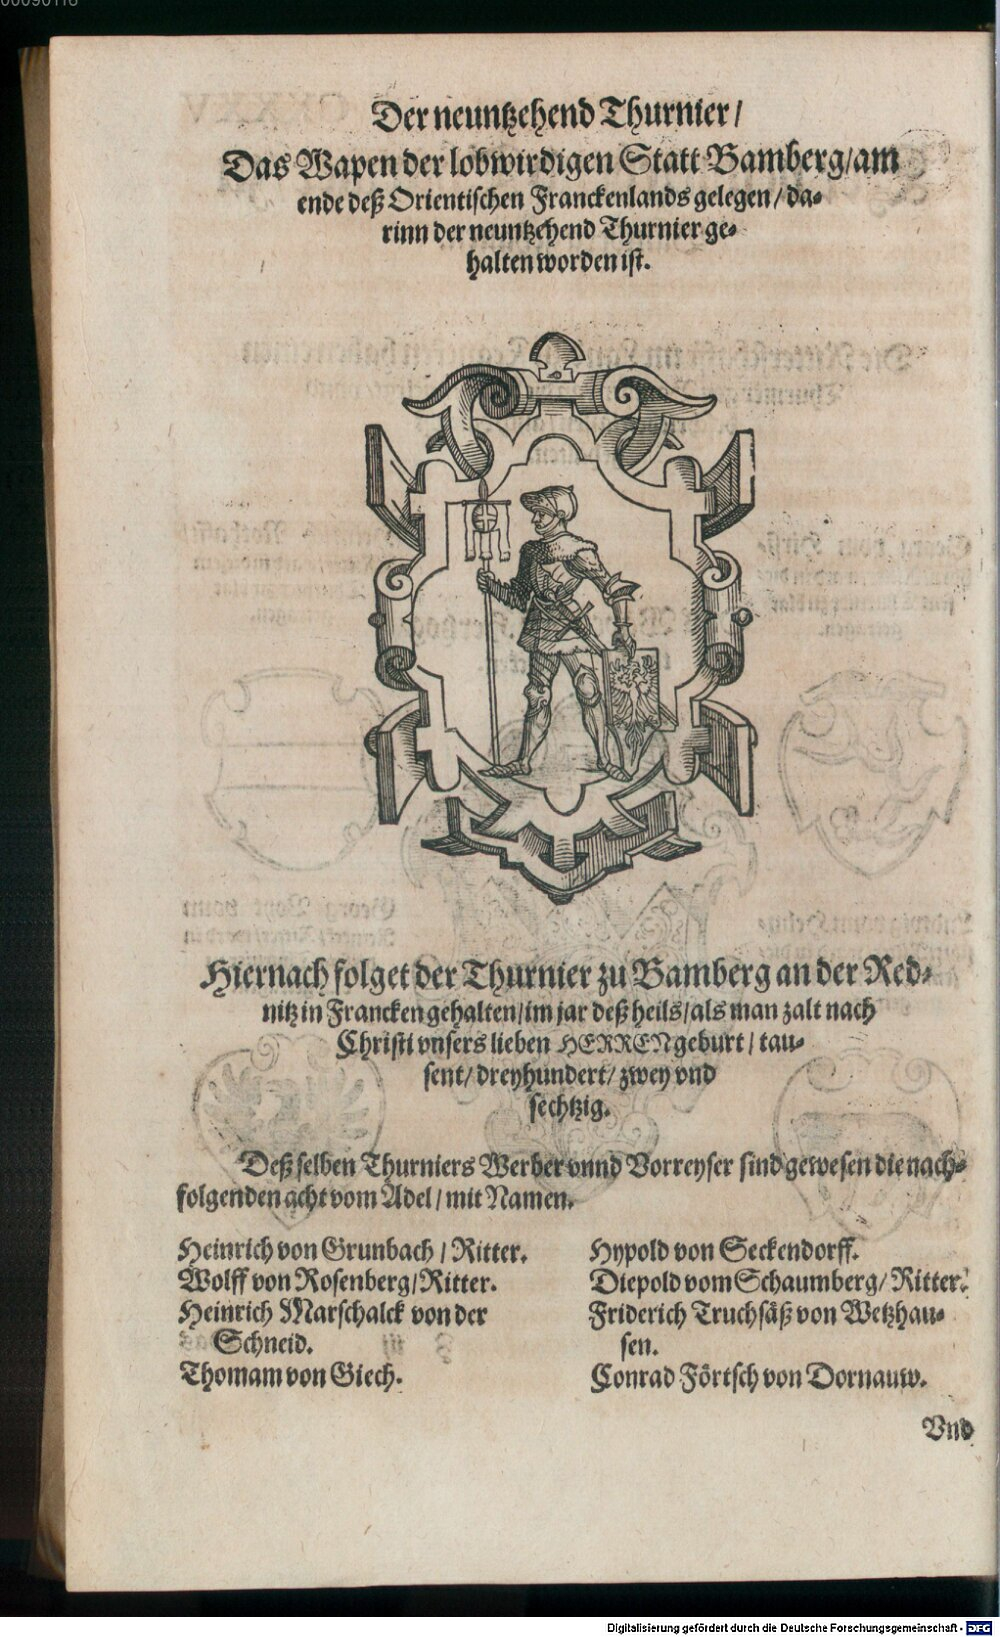 Der neuntzehend Thurnier/
Das Wapen der lobwirdigen Statt Bamberg/am
ende deß Orientischen Franckenlands gelegen/da-
rinn der neuntzehend Thurnier ge-
halten worden ist.
Hiernach folget der Thurnier zu Bamberg an der Red-
nitz in Francken gehalten/im jar deß heils/als man zalt nach
Christi vnsers lieben HERREN geburt/tau-
sent/dreyhundert/zwey vnd
sechtzig.
Deß selben Thurniers Werber vnnd Vorreyser sind gewesen die nach-
folgenden acht vom Adel/mit Namen.
Heinrich von Grunbach/Ritter.
Wolff von Rosenberg/Ritter.
Heinrich Marschalck von der
Schneid.
Thomam von Giech.
Hypold von Seckendorff.
Diepold vom Schaumberg/Ritter.
Friderich Truchsäß von Wetzhau-
sen.
Conrad Förtsch von Dornauw.
Vnd
Digitalisierung gefördert durch die Deutsche Forschungsgemeinschaft - DFG